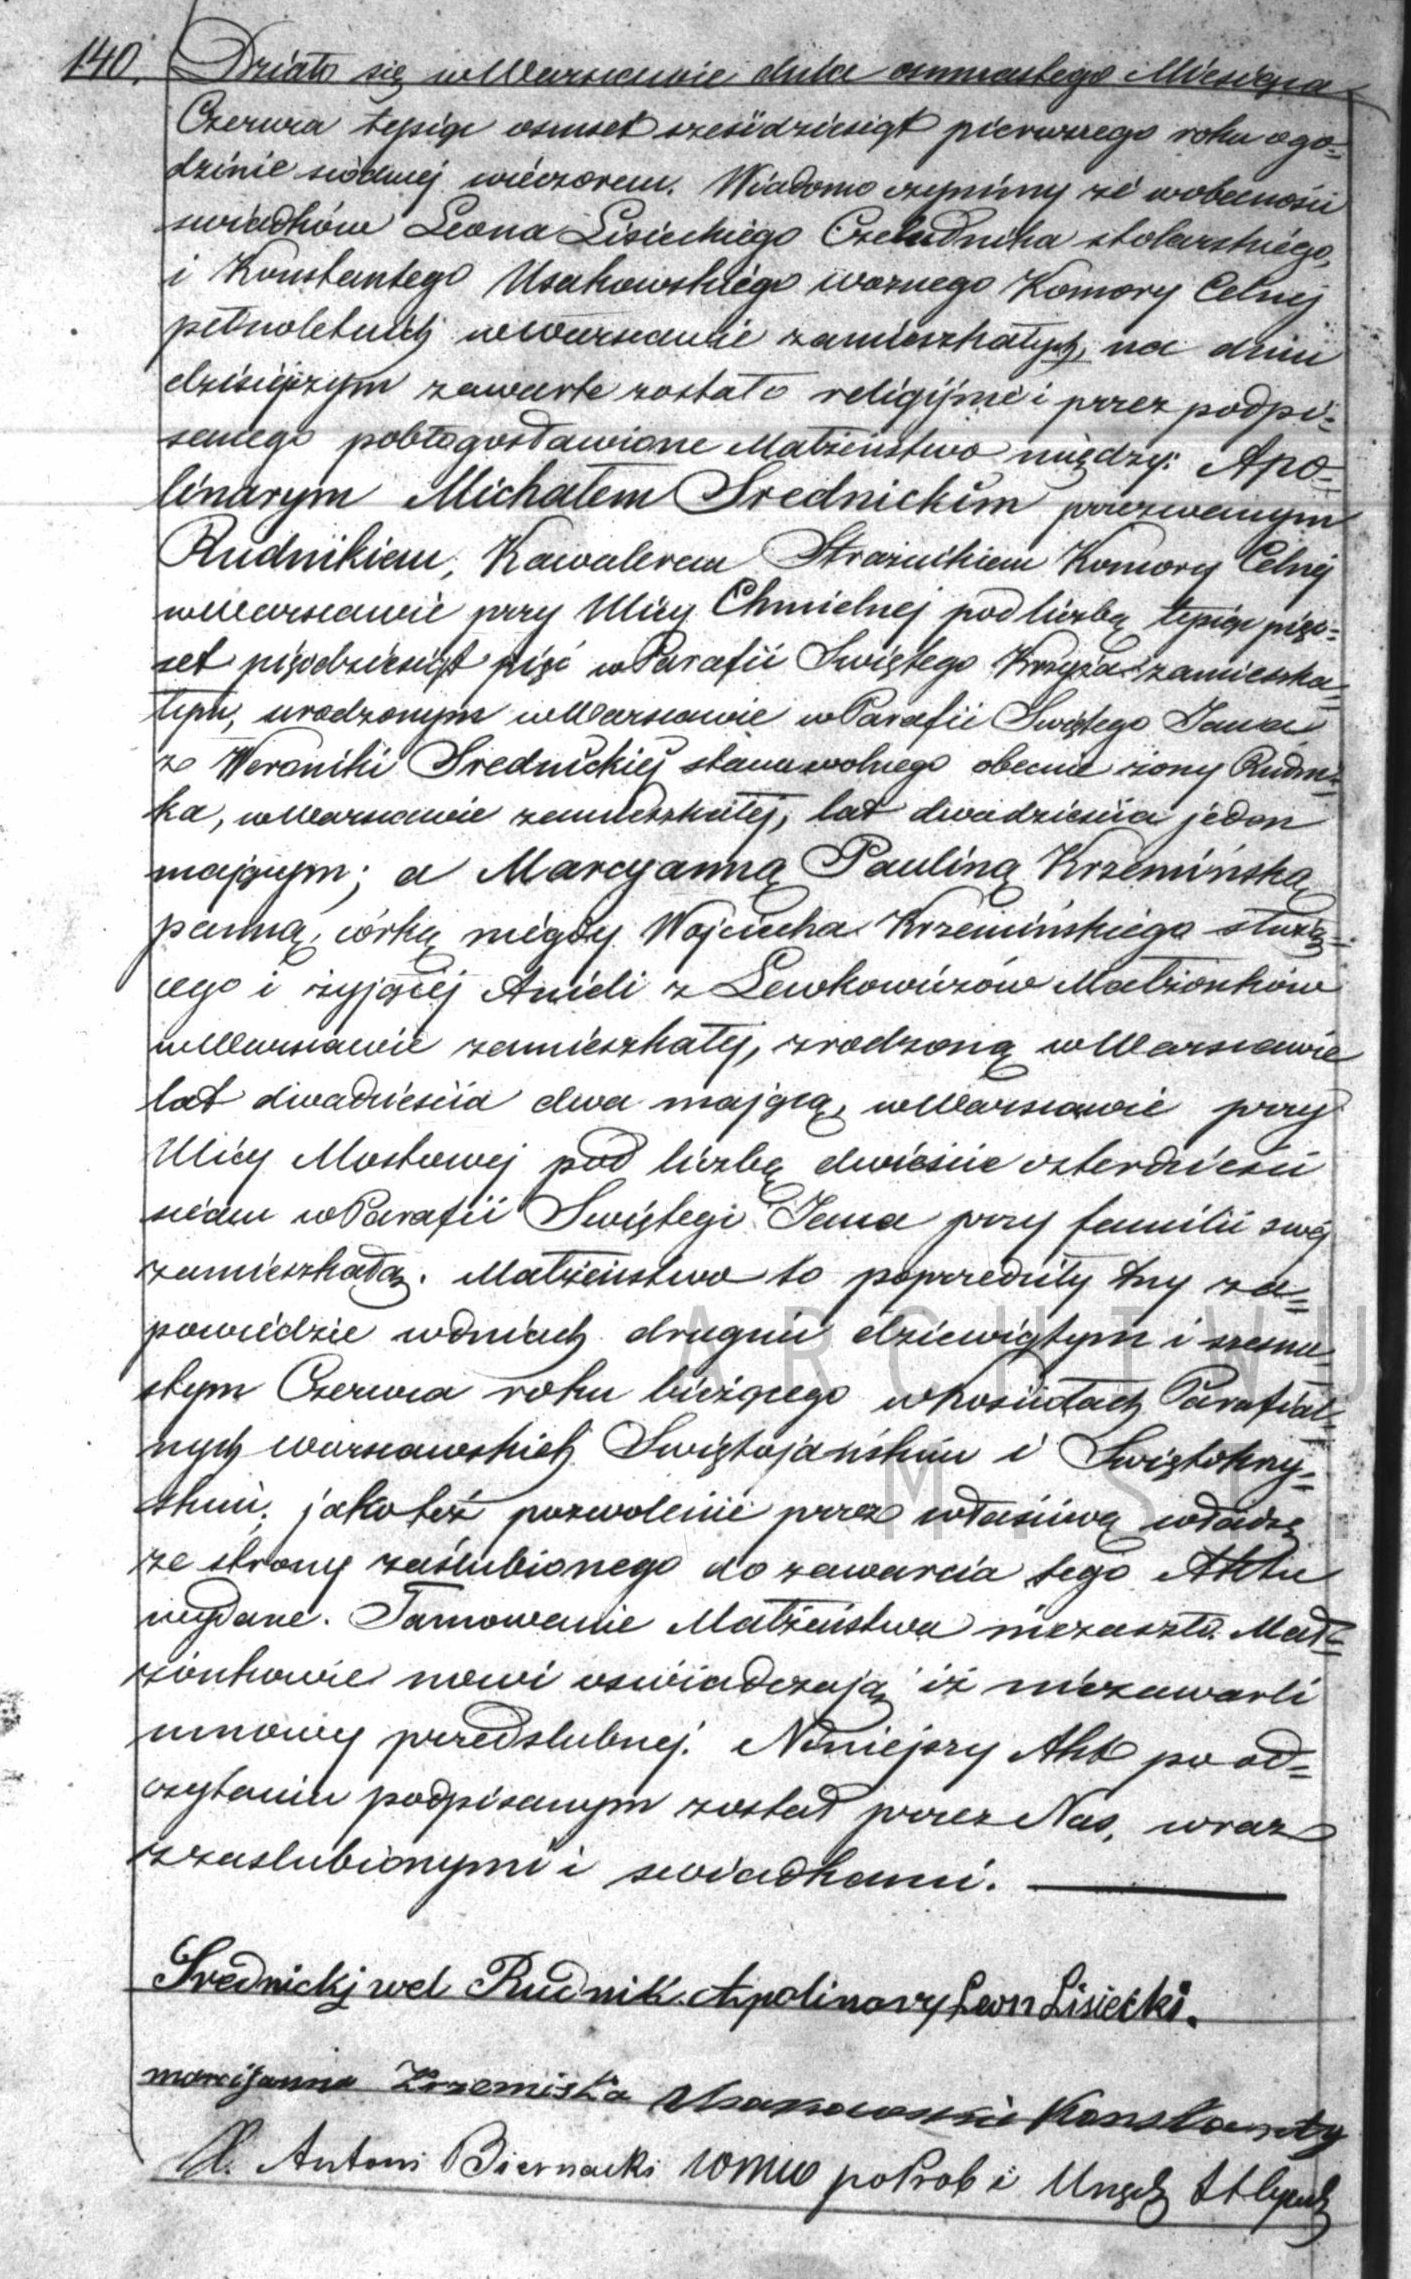 140. Działo się w Warszawie dnia osmnastego Miesiąca
Czerwca tysiąc osmset sześćdziesiąt pierwszego roku o go=
dzinie siódmej wieczorem. Wiadomo czynimy że w obecności
swiadków Leona Lisieckiego Czeladnika stolarskiego,
i Konstantego Usakowskiego woznego Komory Celnej
pełnoletnich w Warszawie zamieszkałych, na dniu
dzisiejszym zawarte zostało religijnie i przez podpi=
sanego pobłogosławione Małżeństwo między: Apo=
linarym Michałem Srednickim przezwanym
Rudnikiem, Kawalerem Strażnikiem Komory Celnej
w Warszawie przy Ulicy Chmielnej pod liczbą tysiąc pięć=
set pięćdziesiąt pięć w Parafii Swiętego Krzyża zamieszka=
łym, urodzonym w Warszawie w Parafii Swiętego Jana
z Weroniki Srednickiej stanu wolnego obecnie żony Rudni=
ka, w Warszawie zamieszkałej, lat dwadzieścia jeden
mającym; a Marcyanną Pauliną Krzemińską
panną, córką niegdy Wojciecha Krzemińskiego służą=
cego i żyjącej Anieli z Lewkowiczów Małżonków
w Warszawie zamieszkałej, zrodzoną w Warszawie
lat dwadzieścia dwa mającą, w Warszawie przy
Ulicy Mostowej pod liczbą dwieście czterdzieści
siedm w Parafii Swiętego Jana przy familii swej
zamieszkałą. Małżeństwo to poprzedziły trzy za=
powiedzie w dniach drugim dziewiątym i szesna=
stym Czerwca roku bieżącego w kosciołach Parafial=
nych warszawskich Swiętojańskim i Swiętokrzy=
skim, jakoteż pozwolenie przez właściwą władzę
ze strony zaślubionego do zawarcia tego Aktu
wydane. Tamowanie Małżeństwa niezaszło. Mał=
żonkowie nowi oswiadczają iż niezawarli
umowy przedslubnej. Niniejszy Akt po od=
czytaniu podpisanym został przez Nas, wraz
z zaslubionymi i swiadkami.
Srednickj vel Rudnik Apolinary Leon Lisiecki.
marcijanna Krzemiska Usakowski Konstanty
X. Antoni Biernacki
ARCHIWU
M S